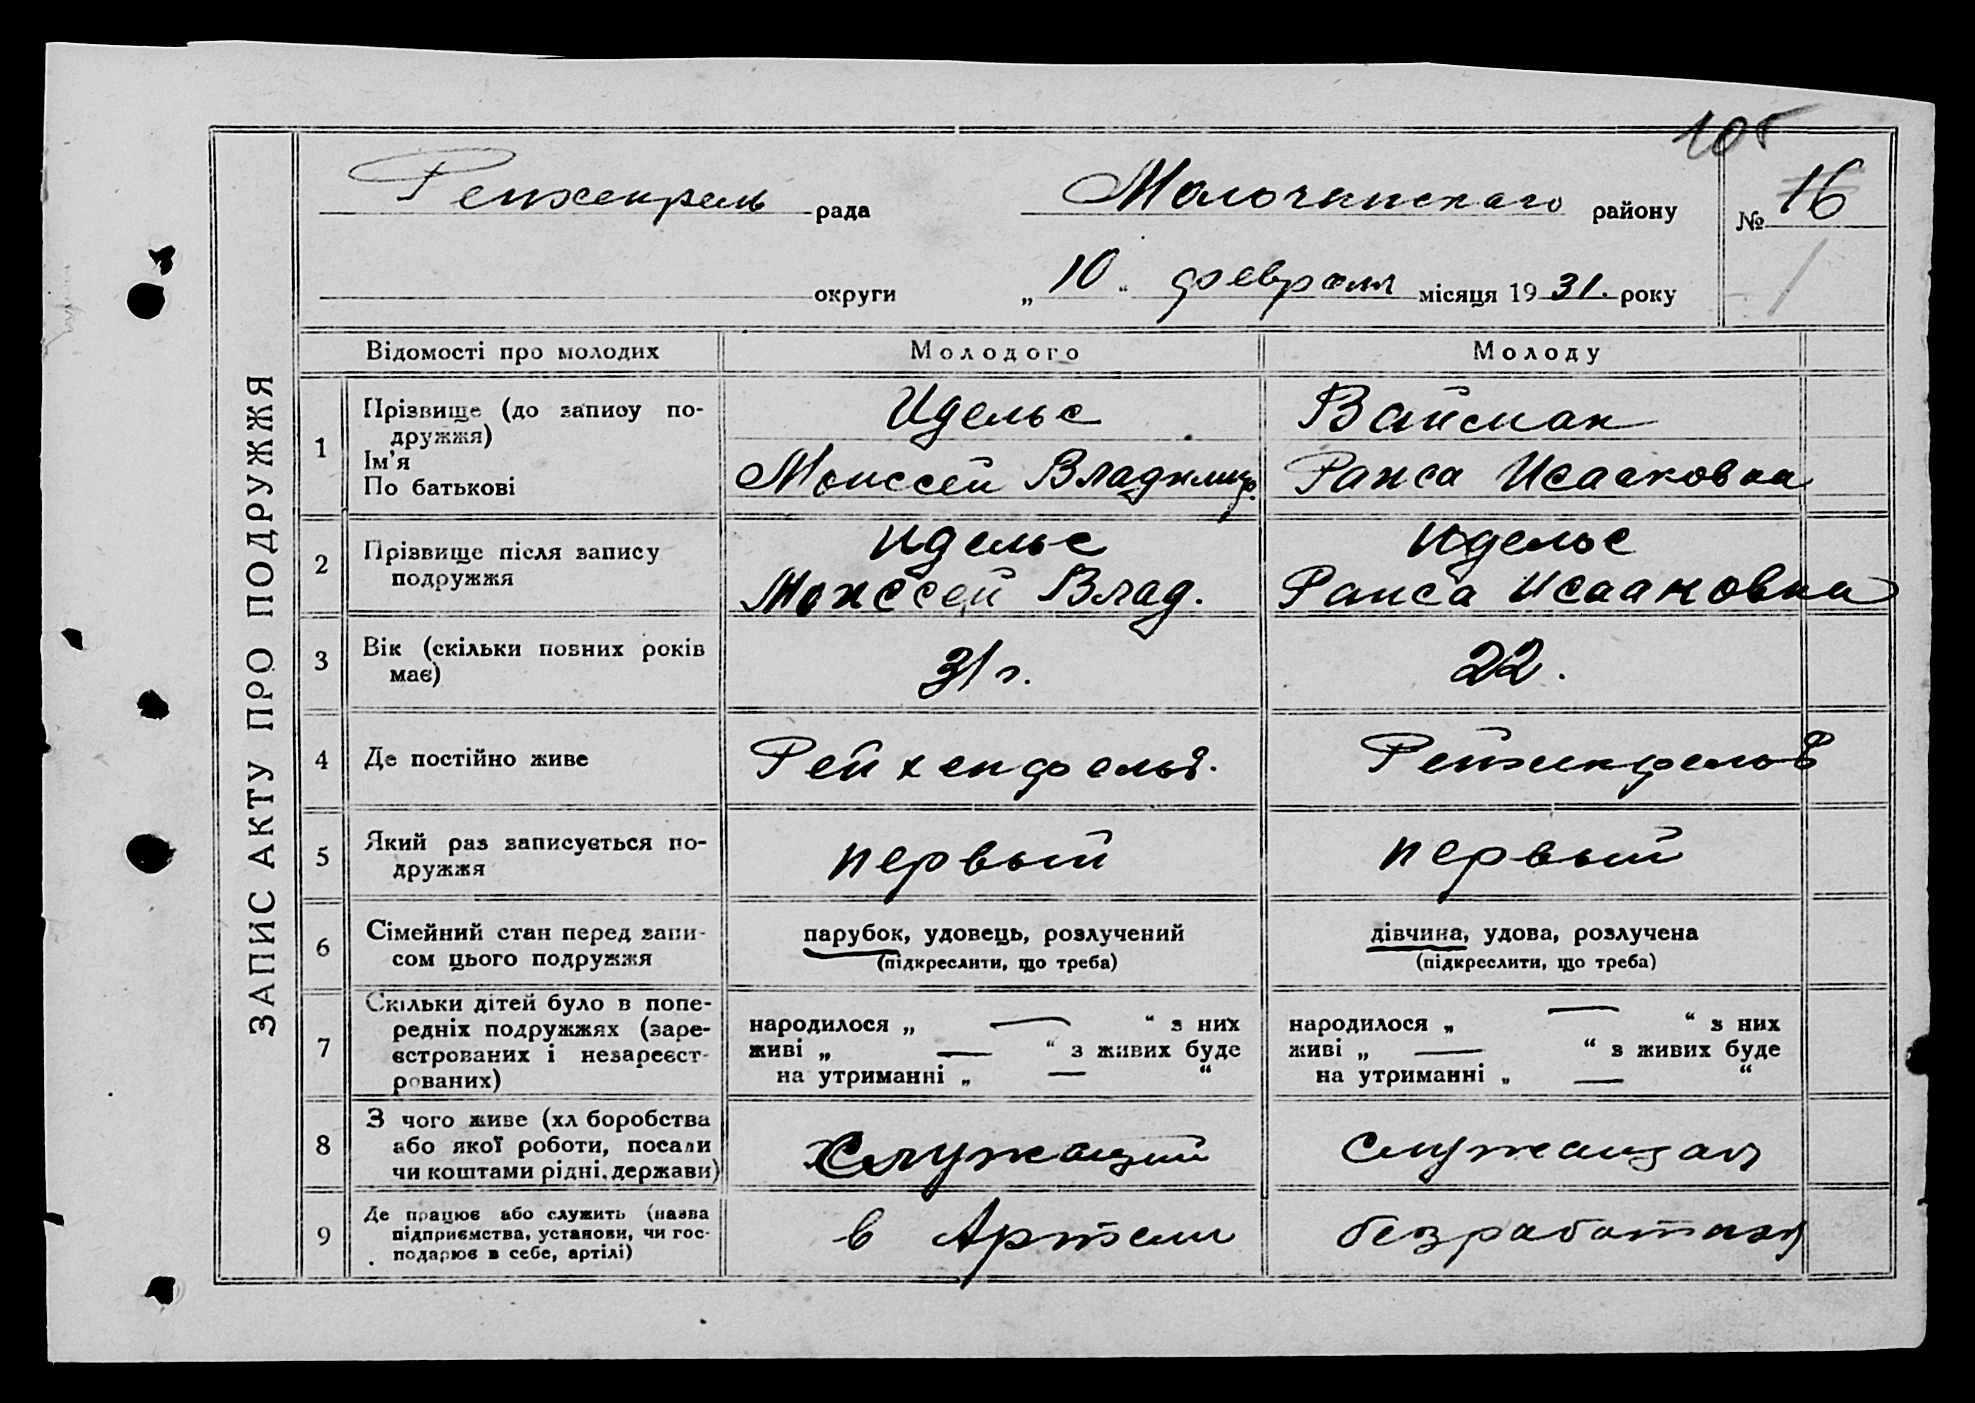 105
Рейхенфель рада Молочанскаго району № 16
округи „ 10 “ февраля місяця 19 31. року
ЗАПИС АКТУ ПРО ПОДРУЖЖЯ
Відомості про молодих Молодого Молоду
1 Прізвище (до запису по-
дружжя)
Ім’я
По батькові
Идельс
Моиссей Владимир.
Вайсман
Раиса Исааковна
2 Прізвище після запису
подружжя
Идельс
Моиссей Влад.
Идельс
Раиса Исааковна
3 Вік (скільки повних років
має)
31 г.
22.
4 Де постійно живе
Рейхенфельд.
Рейхенфельд
5 Який раз записується по-
дружжя
первый
первый
6 Сімейний стан перед запи-
сом цього подружжя
парубок, удовець, розлучений
(підкреслити, що треба)
дівчина, удова, розлучена
(підкреслити, що треба)
7 Скільки дітей було в попе-
редніх подружжях (заре-
єстрованих і незареєст-
рованих)
народилося „ — “ з них
живі „ — “ з живих буде
на утриманні „ — “
народилося „ — “ з них
живі „ — “ з живих буде
на утриманні „ — “
8 З чого живе (хліборобства
або якої роботи, посади
чи коштами рідні, держави)
Служащий
служащая
9 Де працює або служить (назва
підприємства, установи, чи гос-
подарює в себе, артілі)
в Артели
безработная